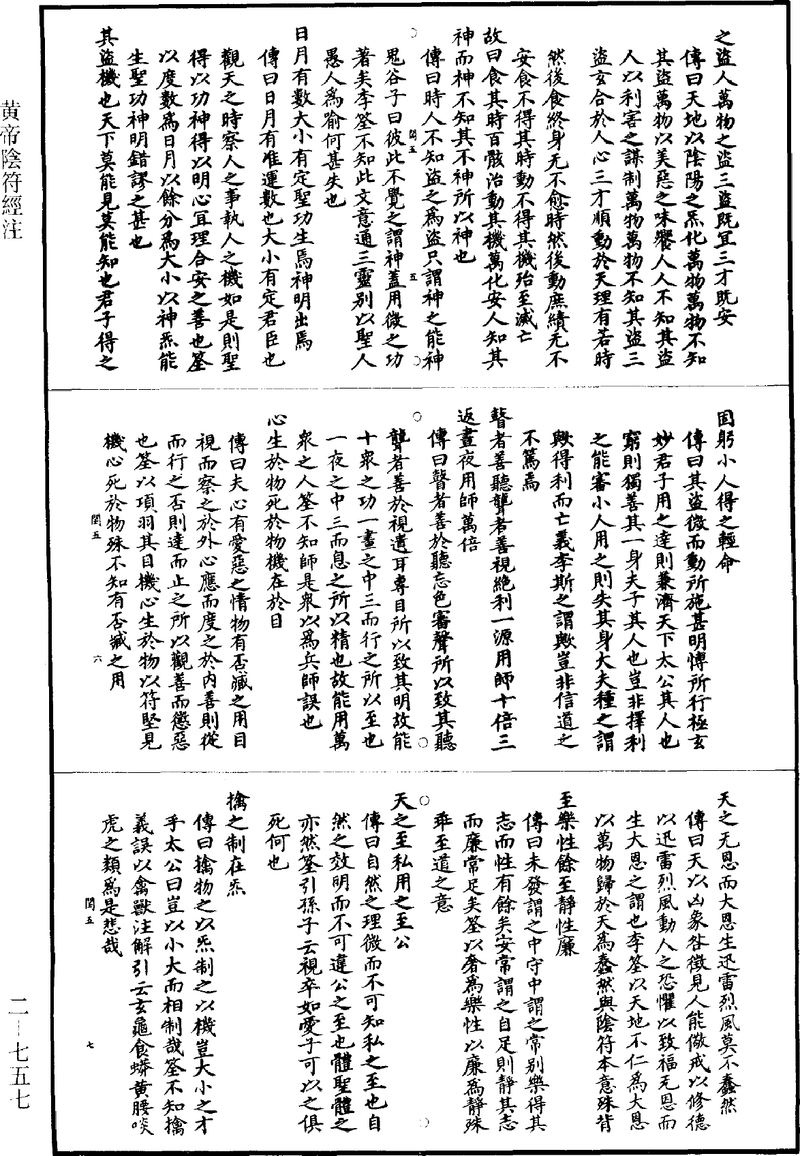 黄帝陰符經注
之盜人萬物之盜三盜既宜三才既安
傳曰天地以陰陽之炁化萬物萬物不知
其盜萬物以美惡之味饗人人不知其盜
人以利害之謀制萬物萬物不知其盜三
盜玄合於人心三才順動於天理有若時
然後食終身无不愈時然後動庶績无不
安食不得其時動不得其機殆至滅亡
故曰食其時百骸治動其機萬化安人知其
神而神不知其不神所以神也
傳曰時人不知盜之為盜只謂神之能神
閏五 五
鬼谷子曰彼此不覺之謂神蓋用微之功
著矣李筌不知此文意通三靈別以聖人
愚人為喻何甚失也
日月有數大小有定聖功生焉神明出焉
傳曰日月有准運數也大小有定君臣也
觀天之時察人之事執人之機如是則聖
得以功神得以明心宜理合安之善也筌
以度數為日月以餘分為大小以神炁能
生聖功神明錯謬之甚也
其盜機也天下莫能見莫能知也君子得之
固躬小人得之輕命
傳曰其盜微而動所施甚明愽所行極玄
妙君子用之達則兼濟天下太公其人也
窮則獨善其一身夫子其人也豈非擇利
之能審小人用之則失其身大夫種之謂
歟得利而亡義李斯之謂歟豈非信道之
不篤焉
瞽者善聽聾者善視絶利一源用師十倍三
返晝夜用師萬倍
傳曰瞽者善於聽忘色審聲所以致其聽
聾者善於視遺耳專目所以致其明故能
十衆之功一晝之中三而行之所以至也
一夜之中三而息之所以精也故能用萬
衆之人筌不知師是衆以為兵師誤也
心生於物死於物機在於目
傳曰夫心有愛惡之情物有否臧之用目
視而察之於外心應而度之於内善則從
而行之否則違而止之所以觀善而懲惡
也筌以項羽其目機心生於物以符堅見
機心死於物殊不知有否臧之用
閏五 六
天之无恩而大恩生迅雷烈風莫不蠢然
傳曰天以凶象咎徵見人能儆戒以修德
以迅雷烈風動人之恐懼以致福无恩而
生大恩之謂也李筌以天地不仁為大恩
以萬物歸於天為蠢然與陰符本意殊背
至樂性餘至静性廉
傳曰未發謂之中守中謂之常別樂得其
志而性有餘矣安常謂之自足則靜其志
而廉常足矣筌以奢為樂性以廉為靜殊
乖至道之意
天之至私用之至公
傳曰自然之理微而不可知私之至也自
然之效明而不可違公之至也體聖體之
亦然筌引孫子云視卒如愛子可以之俱
死何也
擒之制在炁
傳曰擒物之以炁制之以機豈大小之才
乎太公曰豈以小大而相制哉筌不知擒
義誤以禽獸注解引云玄龜食蟒黄腰啖
虎之類為是悲哉
閏五 七
二―七五七